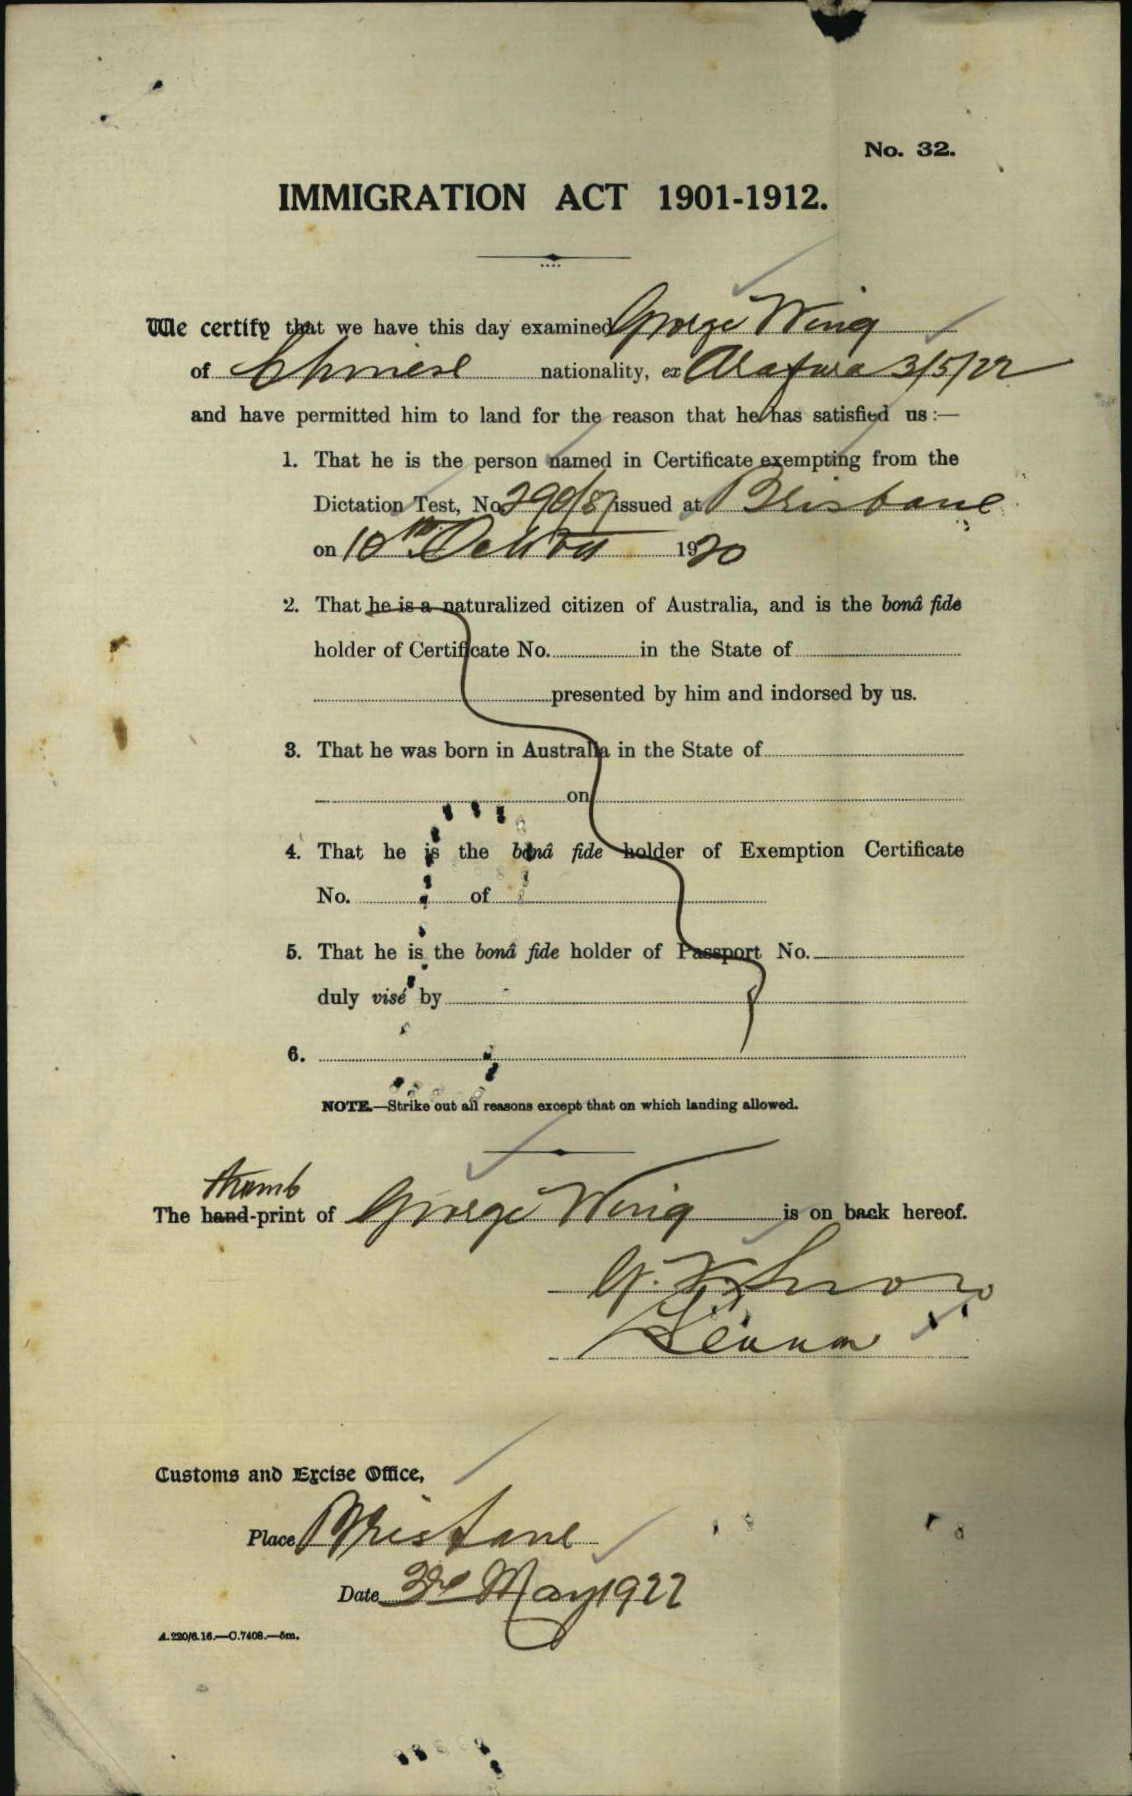 No. 32.
IMMIGRATION ACT 1901-1912.
We certify that we have this day examined George Wing
of Chinese nationality, ex Arafura 3/5/22
and have permitted him to land for the reason that he has satisfied us:—
1. That he is the person named in Certificate exempting from the
Dictation Test, No. issued at Brisbane
on 10th October 1920
2. That he is a naturalized citizen of Australia, and is the bonâ fide
holder of Certificate No. in the State of
presented by him and indorsed by us.
3. That he was born in Australia in the State of
on
4. That he is the bonâ fide holder of Exemption Certificate
No. of
5. That he is the bonâ fide holder of Passport No.
duly visé by
6.
NOTE.—Strike out all reasons except that on which landing allowed.
thumb
The hand-print of George Wing is on back hereof.
Customs and Excise Office,
Place Brisbane
Date 3rd May 1922
A.220/6.16.—C.7408.—5m.